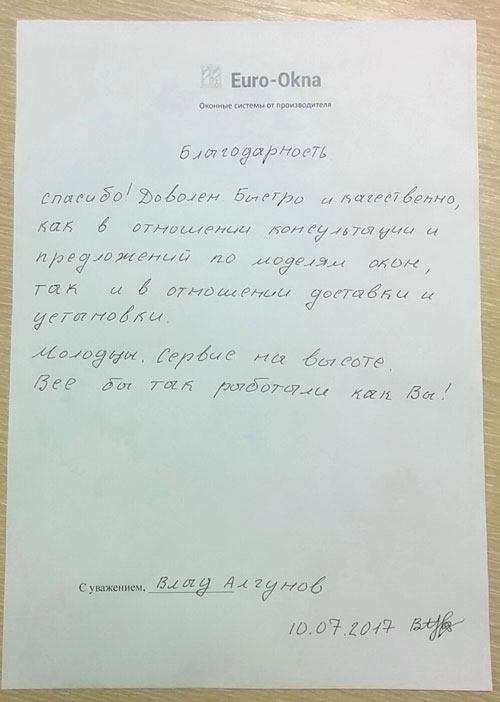 Euro-Okna
Оконные системы от производителя
Благодарность
Спасибо! Доволен Быстро и качественно,
как в отношении консультации и
предложений по моделям окон,
так и в отношении доставки и
установки.
Молодцы. Сервис на высоте.
Все бы так работали как Вы!
С уважением, Влад Алгунов
10.07.2017